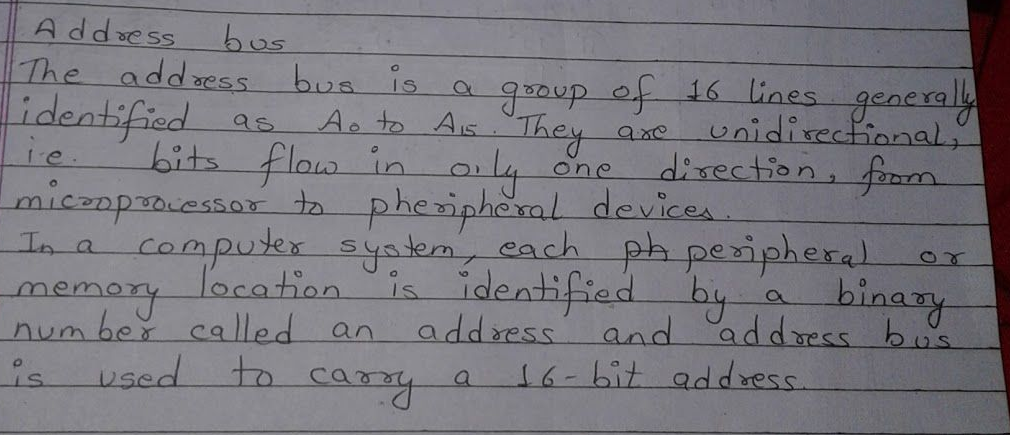 Address bus
The address bus is a group of 16 lines generally
identified as A0 to A15. They are unidirectional,
i.e. bits flow in only one direction, from
microprocessor to pheripheral devices.
In a computer system, each ph peripheral or
memory location is identified by a binary
number called an address and address bus
is used to carry a 16-bit address.